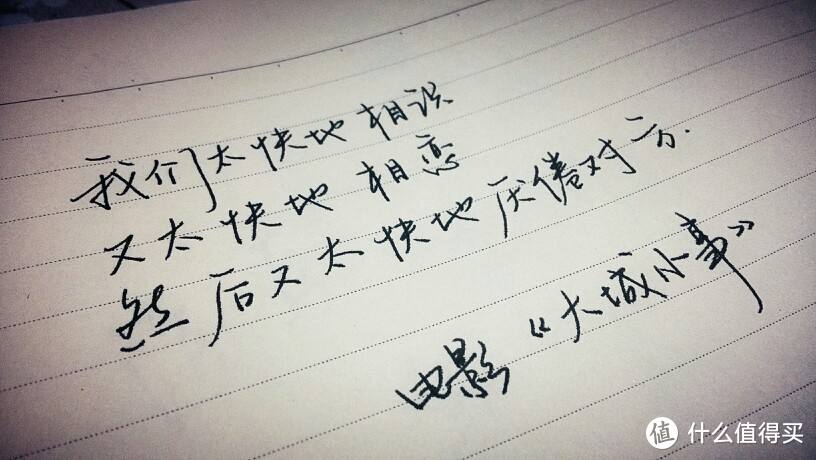 我们太快地相识
又太快地相恋
然后又太快地厌倦对方.
电影《大城小事》
值 什么值得买